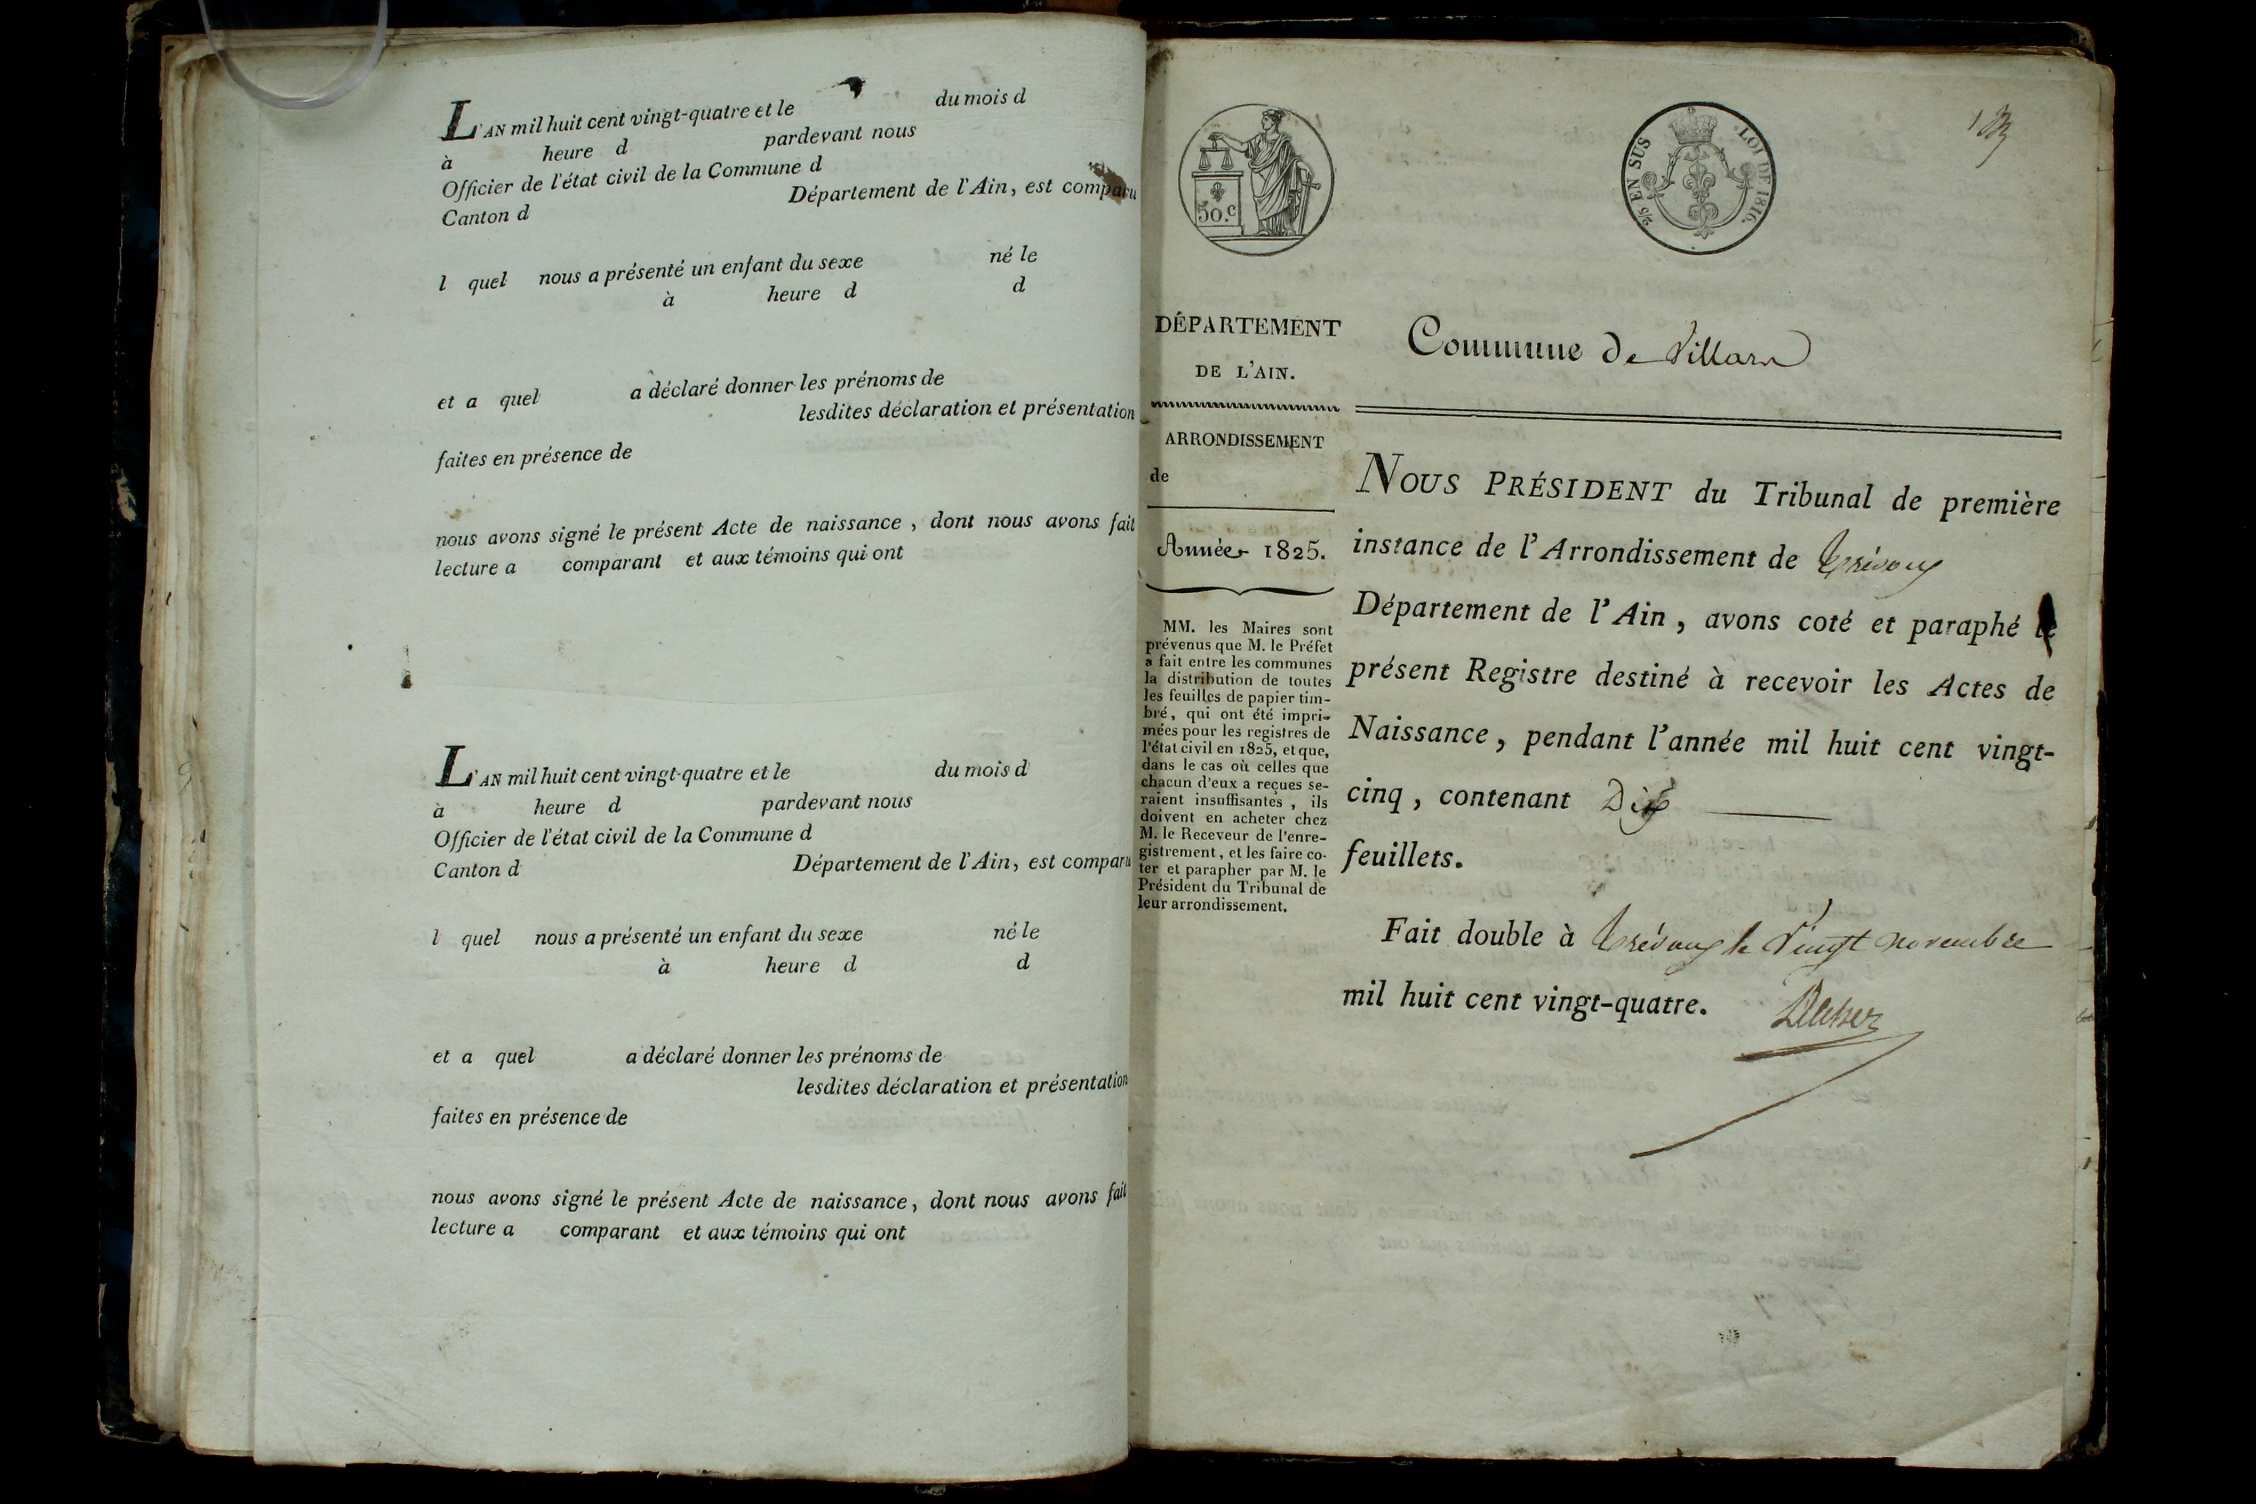 L'AN mil huit cent vingt-quatre et le du mois d
à heure d pardevant nous
Officier de l'état civil de la Commune d
Canton d Département de l'Ain, est comparu
l quel nous a présenté un enfant du sexe né le
à heure d d
et a quel a déclaré donner les prénoms de
lesdites déclaration et présentation
faites en présence de
nous avons signé le présent Acte de naissance, dont nous avons fait
lecture a comparant et aux témoins qui ont
L'AN mil huit cent vingt-quatre et le du mois d
à heure d pardevant nous
Officier de l'état civil de la Commune d
Canton d Département de l'Ain, est comparu
l quel nous a présenté un enfant du sexe né le
à heure d d
et a quel a déclaré donner les prénoms de
lesdites déclaration et présentation
faites en présence de
nous avons signé le présent Acte de naissance, dont nous avons fait
lecture a comparant et aux témoins qui ont
50.c
2/5 EN SUS LOI DE 1816.
DÉPARTEMENT
DE L'AIN.
ARRONDISSEMENT
de
Année 1825.
MM. les Maires sont
prévenus que M. le Préfet
a fait entre les communes
la distribution de toutes
les feuilles de papier tim-
bré, qui ont été impri-
mées pour les registres de
l'état civil en 1825, et que,
dans le cas où celles que
chacun d'eux a reçues se-
raient insuffisantes, ils
doivent en acheter chez
M. le Receveur de l'enre-
gistrement, et les faire co-
ter et parapher par M. le
Président du Tribunal de
leur arrondissement.
Commune de Villars
NOUS PRÉSIDENT du Tribunal de première
instance de l'Arrondissement de Trévoux
Département de l'Ain, avons coté et paraphé le
présent Registre destiné à recevoir les Actes de
Naissance, pendant l'année mil huit cent vingt-
cinq, contenant Dix
feuillets.
Fait double à Trévoux le Vingt novembre
mil huit cent vingt-quatre.